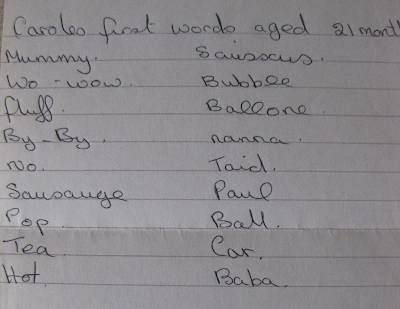 Caroles first words aged 21 month
Mummy. Saisscus.
Wo-wow. Bubble
fluff. Ballone.
By-By. nanna.
No. Taid.
Sausauge Paul
Pop. Ball.
Tea Car.
Hot. Baba.